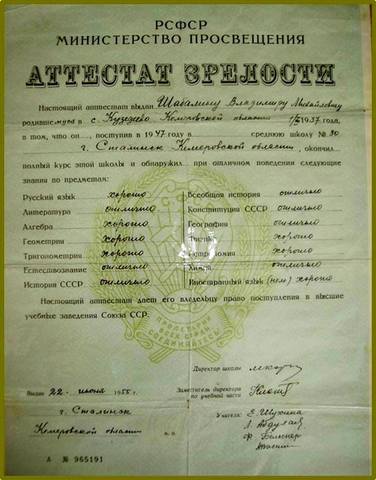 РСФСР
МИНИСТЕРСТВО ПРОСВЕЩЕНИЯ
АТТЕСТАТ ЗРЕЛОСТИ
Настоящий аттестат выдан Шабалину Владимиру Михайловичу
родившемуся в с. Кузедеево Кемеровской области 1937 г.
в том, что он, поступив в 1947 году в среднюю школу № 30
г. Сталинск Кемеровской области, окончил
полный курс этой школы и обнаружил при отличном поведении следующие
знания по предметам:
Русский язык хорошо Всеобщая история отлично
Литература отлично Конституция СССР отлично
Алгебра хорошо География отлично
Геометрия хорошо Физика отлично
Тригонометрия хорошо Астрономия хорошо
Естествознание отлично Химия отлично
История СССР отлично Иностранный язык (нем) хорошо
Настоящий аттестат дает его владельцу право поступления в высшие
учебные заведения Союза ССР.
ПРОЛЕТАРИИ ВСЕХ СТРАН СОЕДИНЯЙТЕСЬ
Директор школы
Выдан 22 июня 1955 г. Заместитель директора
по учебной части
г. Сталинск Учителя: Е. Шукина
Кемеровской области м. п. Л. Абдулая
Ф.
А № 965191